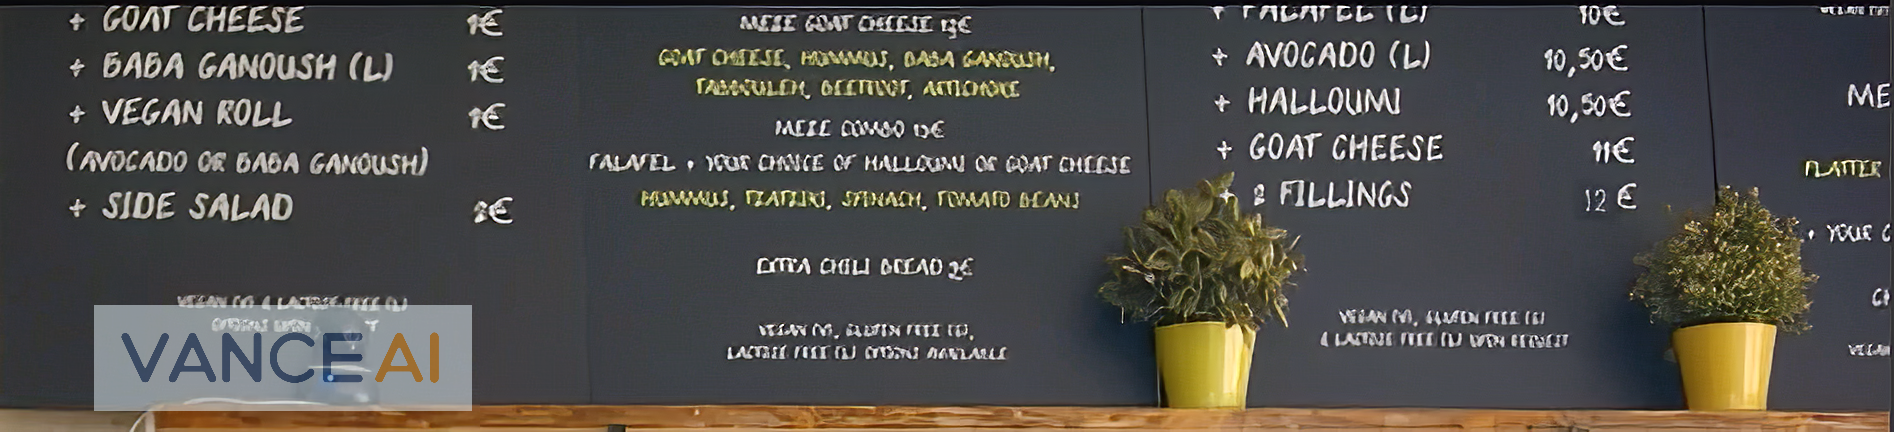 + GOAT CHEESE 1€
+ BABA GANOUSH (L) 1€
+ VEGAN ROLL 1€
(AVOCADO OR BABA GANOUSH)
+ SIDE SALAD
VANCEAI
MEZE GOAT CHEESE
GOAT CHEESE, HUMMUS, BABA GANOUSH,
TABBOULEH, BEETROOT, ARTICHOKE
MEZE COMBO
FALAFEL + YOUR CHOICE OF HALLOUMI OR GOAT CHEESE
HUMMUS, TZATZIKI, SPINACH, TOMATO BEANS
EXTRA CHILI BREAD
VEGAN (V), GLUTEN FREE (G),
LACTOSE FREE (L) OPTIONS AVAILABLE
+ FALAFEL (L) 10€
+ AVOCADO (L) 10,50€
+ HALLOUMI 10,50€
+ GOAT CHEESE 11€
+ 2 FILLINGS 12 €
VEGAN (V), GLUTEN FREE (G)
& LACTOSE FREE (L) UPON REQUEST
ME
PLATTER
+ YOUR C
VEGAN